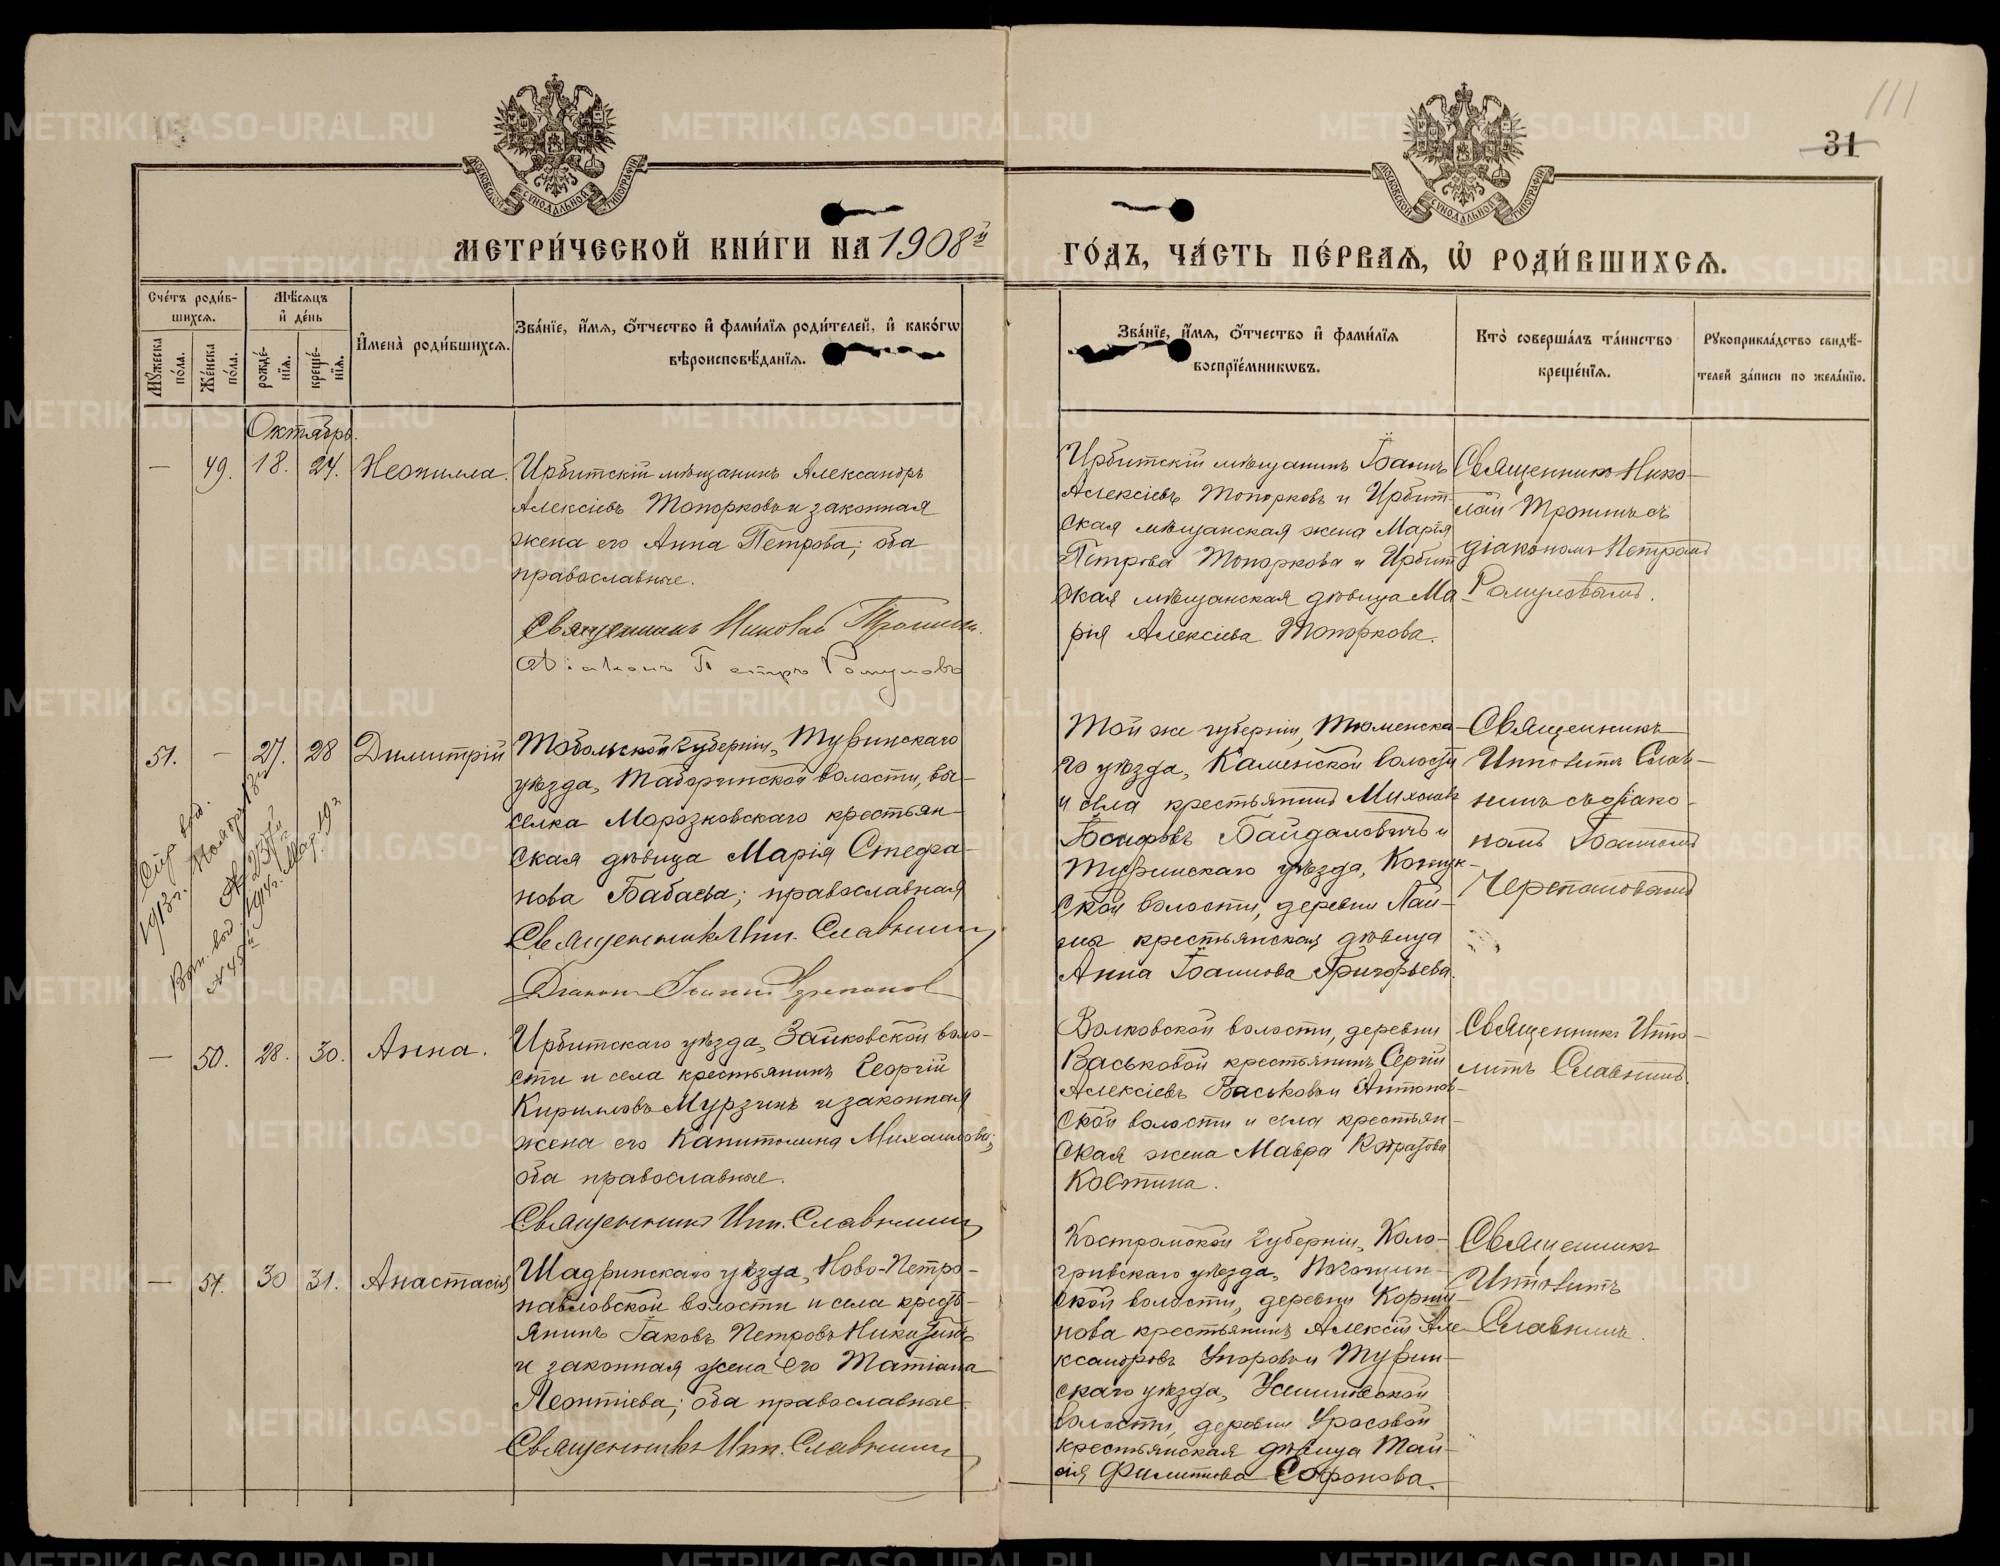 111
31
МОСКОВСКОЙ СѴНОДАЛЬНОЙ ТИПОГРАФІИ
МОСКОВСКОЙ СѴНОДАЛЬНОЙ ТИПОГРАФІИ
МЕТРИ́ЧЕСКОЙ КНИ́ГИ НА 1908й
ГО́ДЪ, ЧА́СТЬ ПЕ́РВАЯ, Ѡ҆ РОДИ́ВШИХСЯ.
Сче́тъ роди́в-
шихся.
Мѣ́сяцъ
и҆ де́нь
Мꙋ́жеска по́ла.
Же́нска по́ла.
рожде́-
нїя.
креще́-
нїя.
И҆мена̀ роди́вшихся.
Зва́нїе, и҆́мя, ѻ҆́тчество и҆ фами́лїя роди́телей, и҆ како́гѡ
вѣроисповѣ́данїя.
Зва́нїе, и҆́мя, ѻ҆́тчество и҆ фами́лїя
воспрїе́мникѡвъ.
Кто̀ соверша́лъ та́инство
креще́нїя.
Рꙋкоприкла́дство свидѣ́-
телей за́писи по жела́нїю.
Октябрь.
— 49. 18. 24. Неонилла.
Ирбитскій мѣщанинъ Александръ
Алексіевъ Топорковъ и законная
жена его Анна Петрова; оба
православные.
Священникъ Николай Тронинъ.
Діаконъ Петръ Ромуловъ
Ирбитскій мѣщанинъ Іоаннъ
Алексіевъ Топорковъ и Ирбит-
ская мѣщанская жена Марія
Петрова Топоркова и Ирбит
ская мѣщанская дѣвица Ма-
рія Алексіева Топоркова.
Священникъ Нико-
лай Тронинъ съ
діакономъ Петромъ
Ромуловымъ.
51. — 27. 28 Димитрій
Тобольской губерніи, Туринскаго
уѣзда, Таборинской волости, вы-
селка Морозковскаго крестьян-
ская дѣвица Марія Стефа-
нова Бабаева; православная
Священникъ Ипп. Славнинъ
Діаконъ Іоаннъ Черепановъ
Той же губерніи, Тюменска-
го уѣзда, Каменской волости
и села крестьянинъ Михаилъ
Байдаловичъ и
Туринскаго уѣзда,
ской волости, деревни
крестьянская дѣвица
Анна Іоаннова Григорьева.
Священникъ
Ипполитъ Слав-
нинъ съ діако-
номъ Іоанномъ
Черепановымъ
1913 г. Ноября 13
№ 2377
1914 г. Мар. 19
№ 45
— 50. 28. 30. Анна.
Ирбитскаго уѣзда, Зайковской воло-
сти и села крестьянинъ Георгій
Кирилловъ Мурзинъ и законная
жена его Капитолина Михаилова;
оба православные.
Священникъ Ипп. Славнинъ
Волковской волости, деревни
Васьковой крестьянинъ Сергій
Алексіевъ Васьковъ и Антонов-
ской волости и села крестьян-
ская жена Мавра
Костина.
Священникъ Иппо-
литъ Славнинъ.
— 51. 30 31. Анастасія
Шадринскаго уѣзда, Ново-Петро-
павловской волости и села кресть-
янинъ Іаковъ Петровъ Никитинъ
и законная жена его Татіана
Леонтіева; оба православные
Священникъ Ипп. Славнинъ
Костромской губерніи, Коло-
гривскаго уѣзда,
ской волости, деревни
нова крестьянинъ Алексій Але-
ксандровъ и Турин-
скаго уѣзда,
волости, деревни Урасовой
крестьянская дѣвица Таи-
сія Филиппова Софонова.
Священникъ
Ипполитъ
Славнинъ.
METRIKI.GASO-URAL.RU